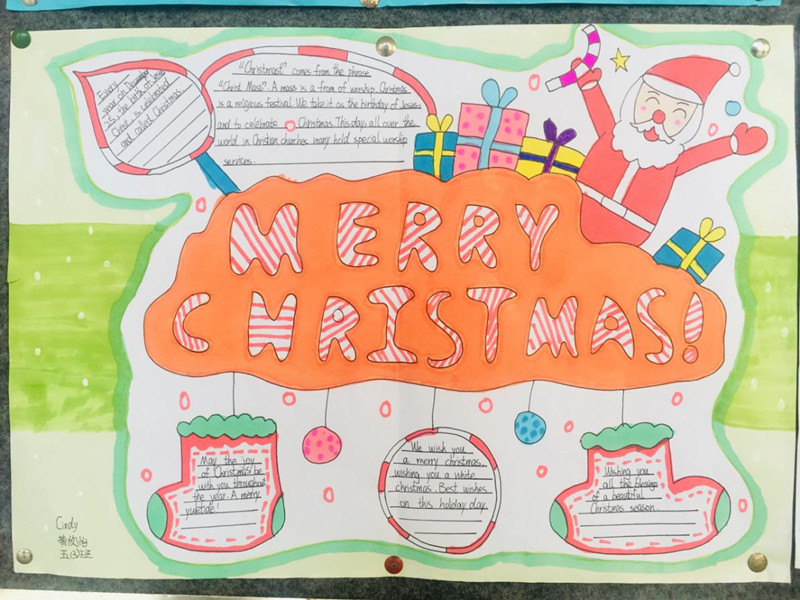 Every
year on December
is the birth of Jesus
Christ is celebrated
and called Christmas.
"Christmast" comes from the phrase
"Christ Mass". A mass is a from of worship. Christmas
is a religious festival. We take it as the birthday of Jesus
and to celebrate Christmas. This day, all over the
world in Christian churches many hold special worship
services.
MERRY
CHRISTMAS!
May the joy
of Christmas be
with you throughout
the year. A merry
yuletide!
We wish you
a merry christmas,
wishing you a white
christmas. Best wishes
on this holiday day.
Wishing you
all the blessings
of a beautiful
Christmas season.
Cindy
五(3)班